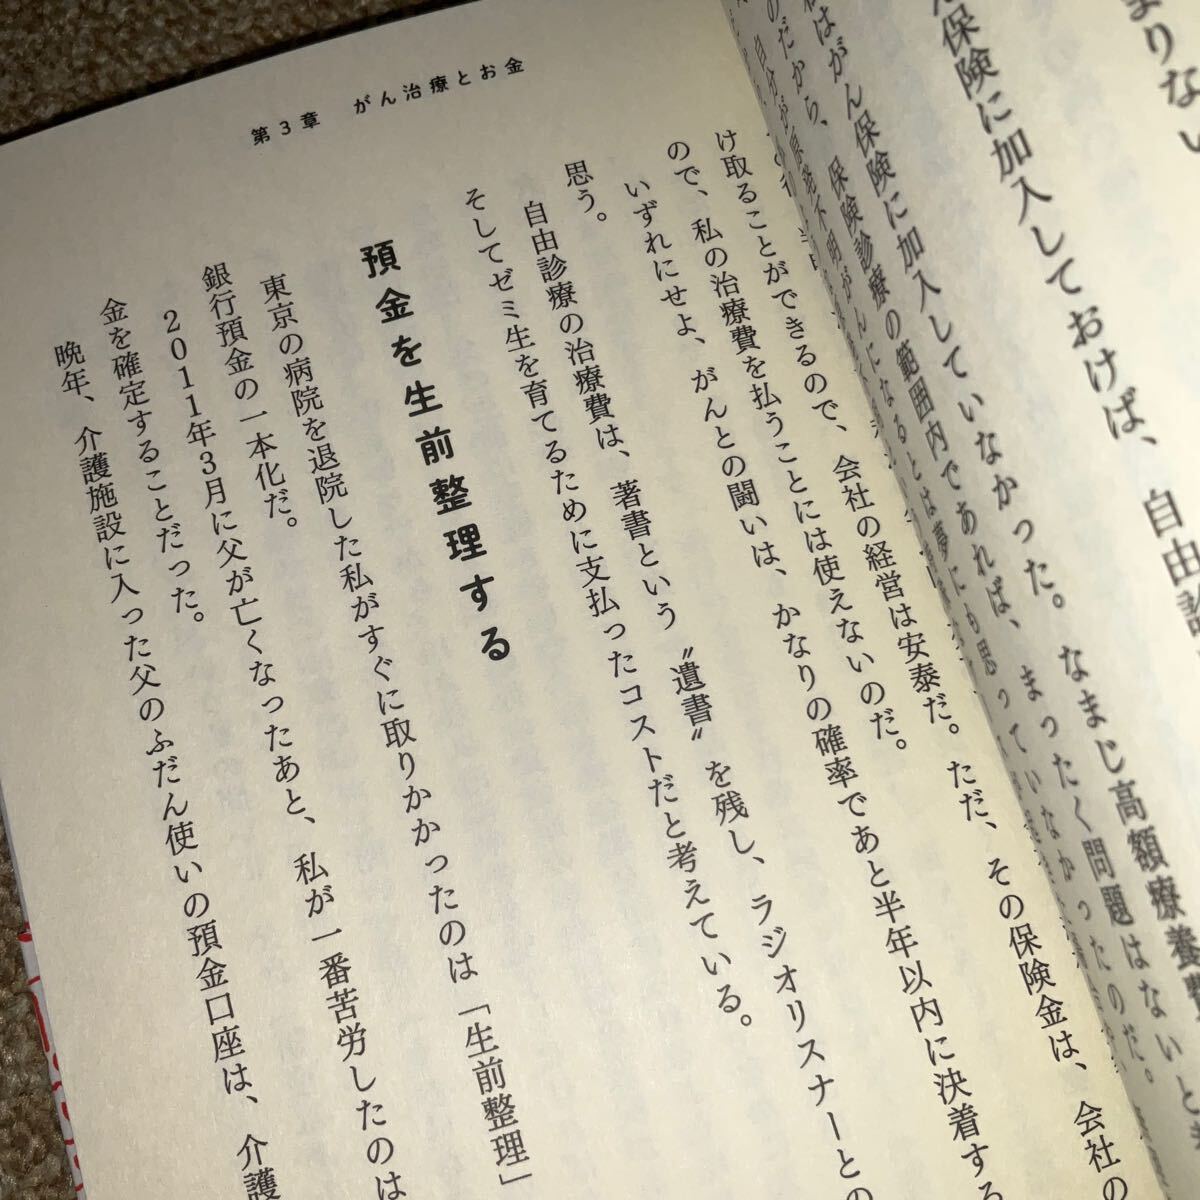 まりない
保険に加入しておけば、自由診
がん保険に加入していなかった。なまじ高額療養費
のだから、保険診療の範囲内であれば、まったく問題はないと
自分が原発不明がんになるとは夢にも思っていなかった
け取ることができるので、会社の経営は安泰だ。ただ、その保険金は、会社の
ので、私の治療費を払うことには使えないのだ。
いずれにせよ、がんとの闘いは、かなりの確率であと半年以内に決着する
思う。
自由診療の治療費は、著書という〝遺書〟を残し、ラジオリスナーとの
そしてゼミ生を育てるために支払ったコストだと考えている。
預金を生前整理する
東京の病院を退院した私がすぐに取りかかったのは「生前整理」
銀行預金の一本化だ。
2011年3月に父が亡くなったあと、私が一番苦労したのは
金を確定することだった。
晩年、介護施設に入った父のふだん使いの預金口座は、介護
第3章 がん治療とお金